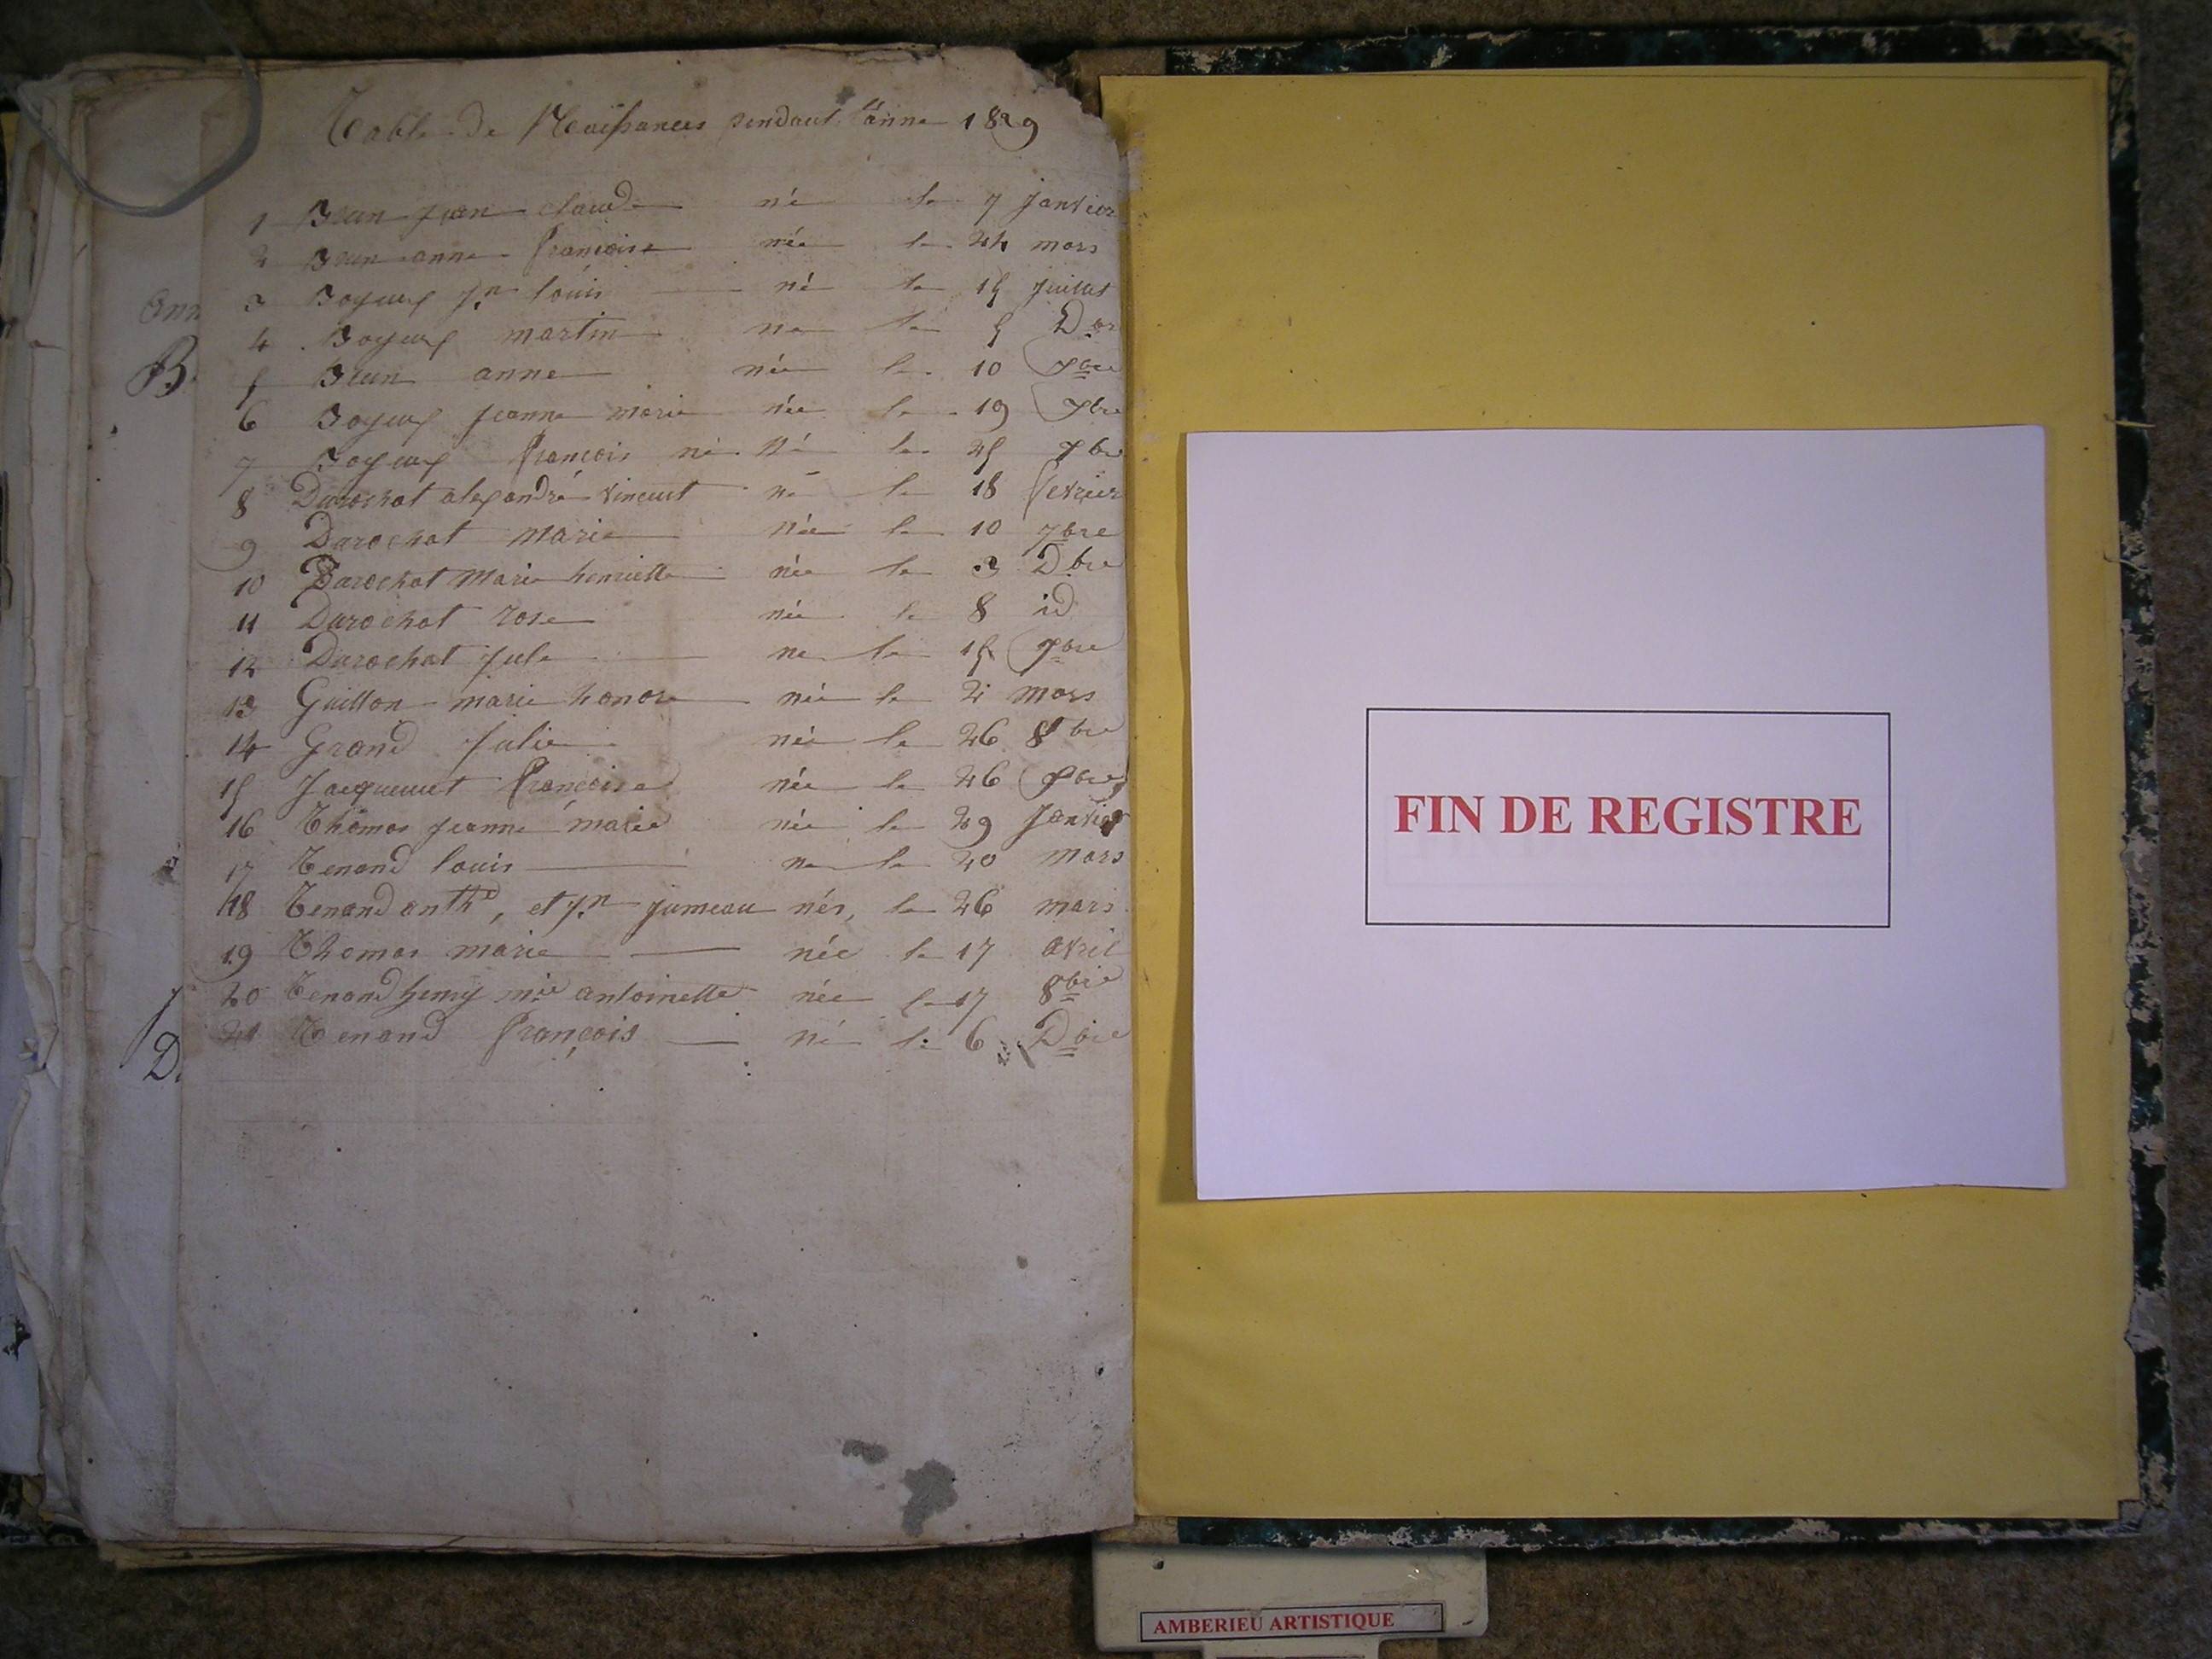 Table de Naissances pendant l'anne 1829
1 Brun jean claude né le 7 janvier
2 Brun anne françoise née le 24 mars
3 Boyeux jn louis né le 15 juillet
4 Boyeux martin né le 5 Dbre
5 Brun anne née le 10
6 Boyeux jeanne marie née le 19
7 Boyeux françois né né le 25
8 Darochat alexandre vincent né le 18 fevrier
9 Darochat Marie née le 10 7bre
10 Darochat Marie henriette née le 3 Dbre
11 Darochat rose née le 8 id
12 Darochat jule né le 15
13 Guillon marie honore née le 2 mars
14 Grand julie née le 26 8bre
15 Jacquemet françoise née le 26
16 Thomas jeanne marie née le 29 Janvier
17 Tenand louis né le 20 mars
18 Tenand anthd, et jn jumeau nés, le 26 mars
19 Thomas marie née le 17 avril
20 Tenand henry mie antoinette née le 17 8bre
21 Tenand françois né le 6 Dbre
Ann
B
D
FIN DE REGISTRE
AMBERIEU ARTISTIQUE